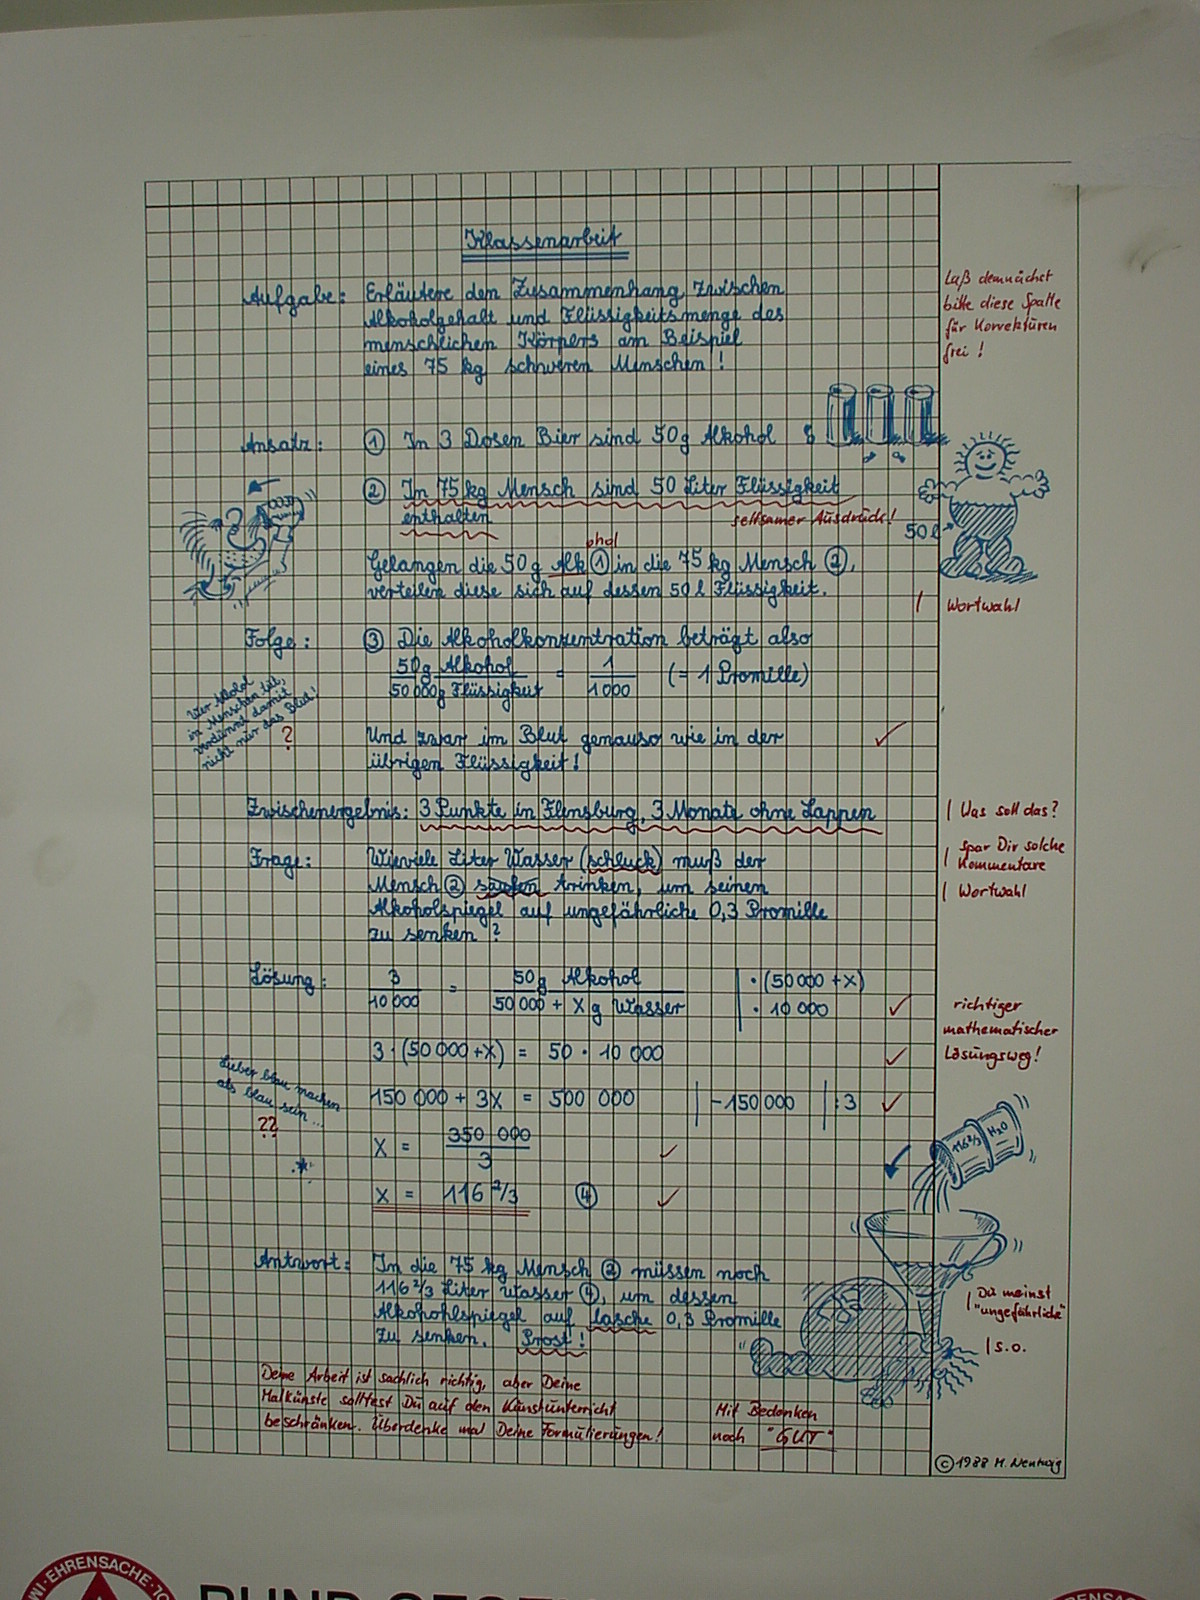 Klassenarbeit
Aufgabe: Erläutere den Zusammenhang zwischen
Alkoholgehalt und Flüssigkeitsmenge des
menschlichen Körpers am Beispiel
eines 75 kg schweren Menschen!
Laß demnächst
bitte diese Spalte
für Korrekturen
frei!
Ansatz: ① In 3 Dosen Bier sind 50g Alkohol
② In 75 kg Mensch sind 50 Liter Flüssigkeit
enthalten
seltsamer Ausdruck!
50 l
ohol
Gelangen die 50 g Alk ① in die 75 kg Mensch ②,
verteilen diese sich auf dessen 50 l Flüssigkeit.
| Wortwahl
Folge: ③ Die Alkoholkonzentration beträgt also
50g Alkohol / 50 000g Flüssigkeit = 1 / 1000 (= 1 Promille)
in Menschen tut,
verdünnt damit
nicht nur das Blut!
?
Und zwar im Blut genauso wie in der
übrigen Flüssigkeit!
Zwischenergebnis: 3 Punkte in Flensburg, 3 Monate ohne Lappen
| Was soll das?
Frage: Wieviele Liter Wasser (schluck) muß der
Mensch ② saufen trinken, um seinen
Alkoholspiegel auf ungefährliche 0,3 Promille
zu senken?
| spar Dir solche
Kommentare
| Wortwahl
Lösung: 3 / 10 000 = 50g Alkohol / 50 000 + X g Wasser | · (50 000 + X)
· 10 000
3 · (50 000 + X) = 50 · 10 000
150 000 + 3X = 500 000 | -150 000 | : 3
X = 350 000 / 3
X = 116 2/3 ④
richtiger
mathematischer
Lösungsweg!
Lieber blau machen
als blau sein...
??
116 2/3 H2O
Antwort: In die 75 kg Mensch ② müssen noch
116 2/3 Liter Wasser ④, um dessen
Alkohohlspiegel auf lasche 0,3 Promille
zu senken. Prost!
| Du meinst
"ungefährliche"
| s.o.
Deine Arbeit ist sachlich richtig, aber Deine
Malkünste solltest Du auf den Kunstunterricht
beschränken. Überdenke mal Deine Formulierungen!
Mit Bedenken
noch "GUT"
© 1988 M. Nentwig
EHRENSACHE